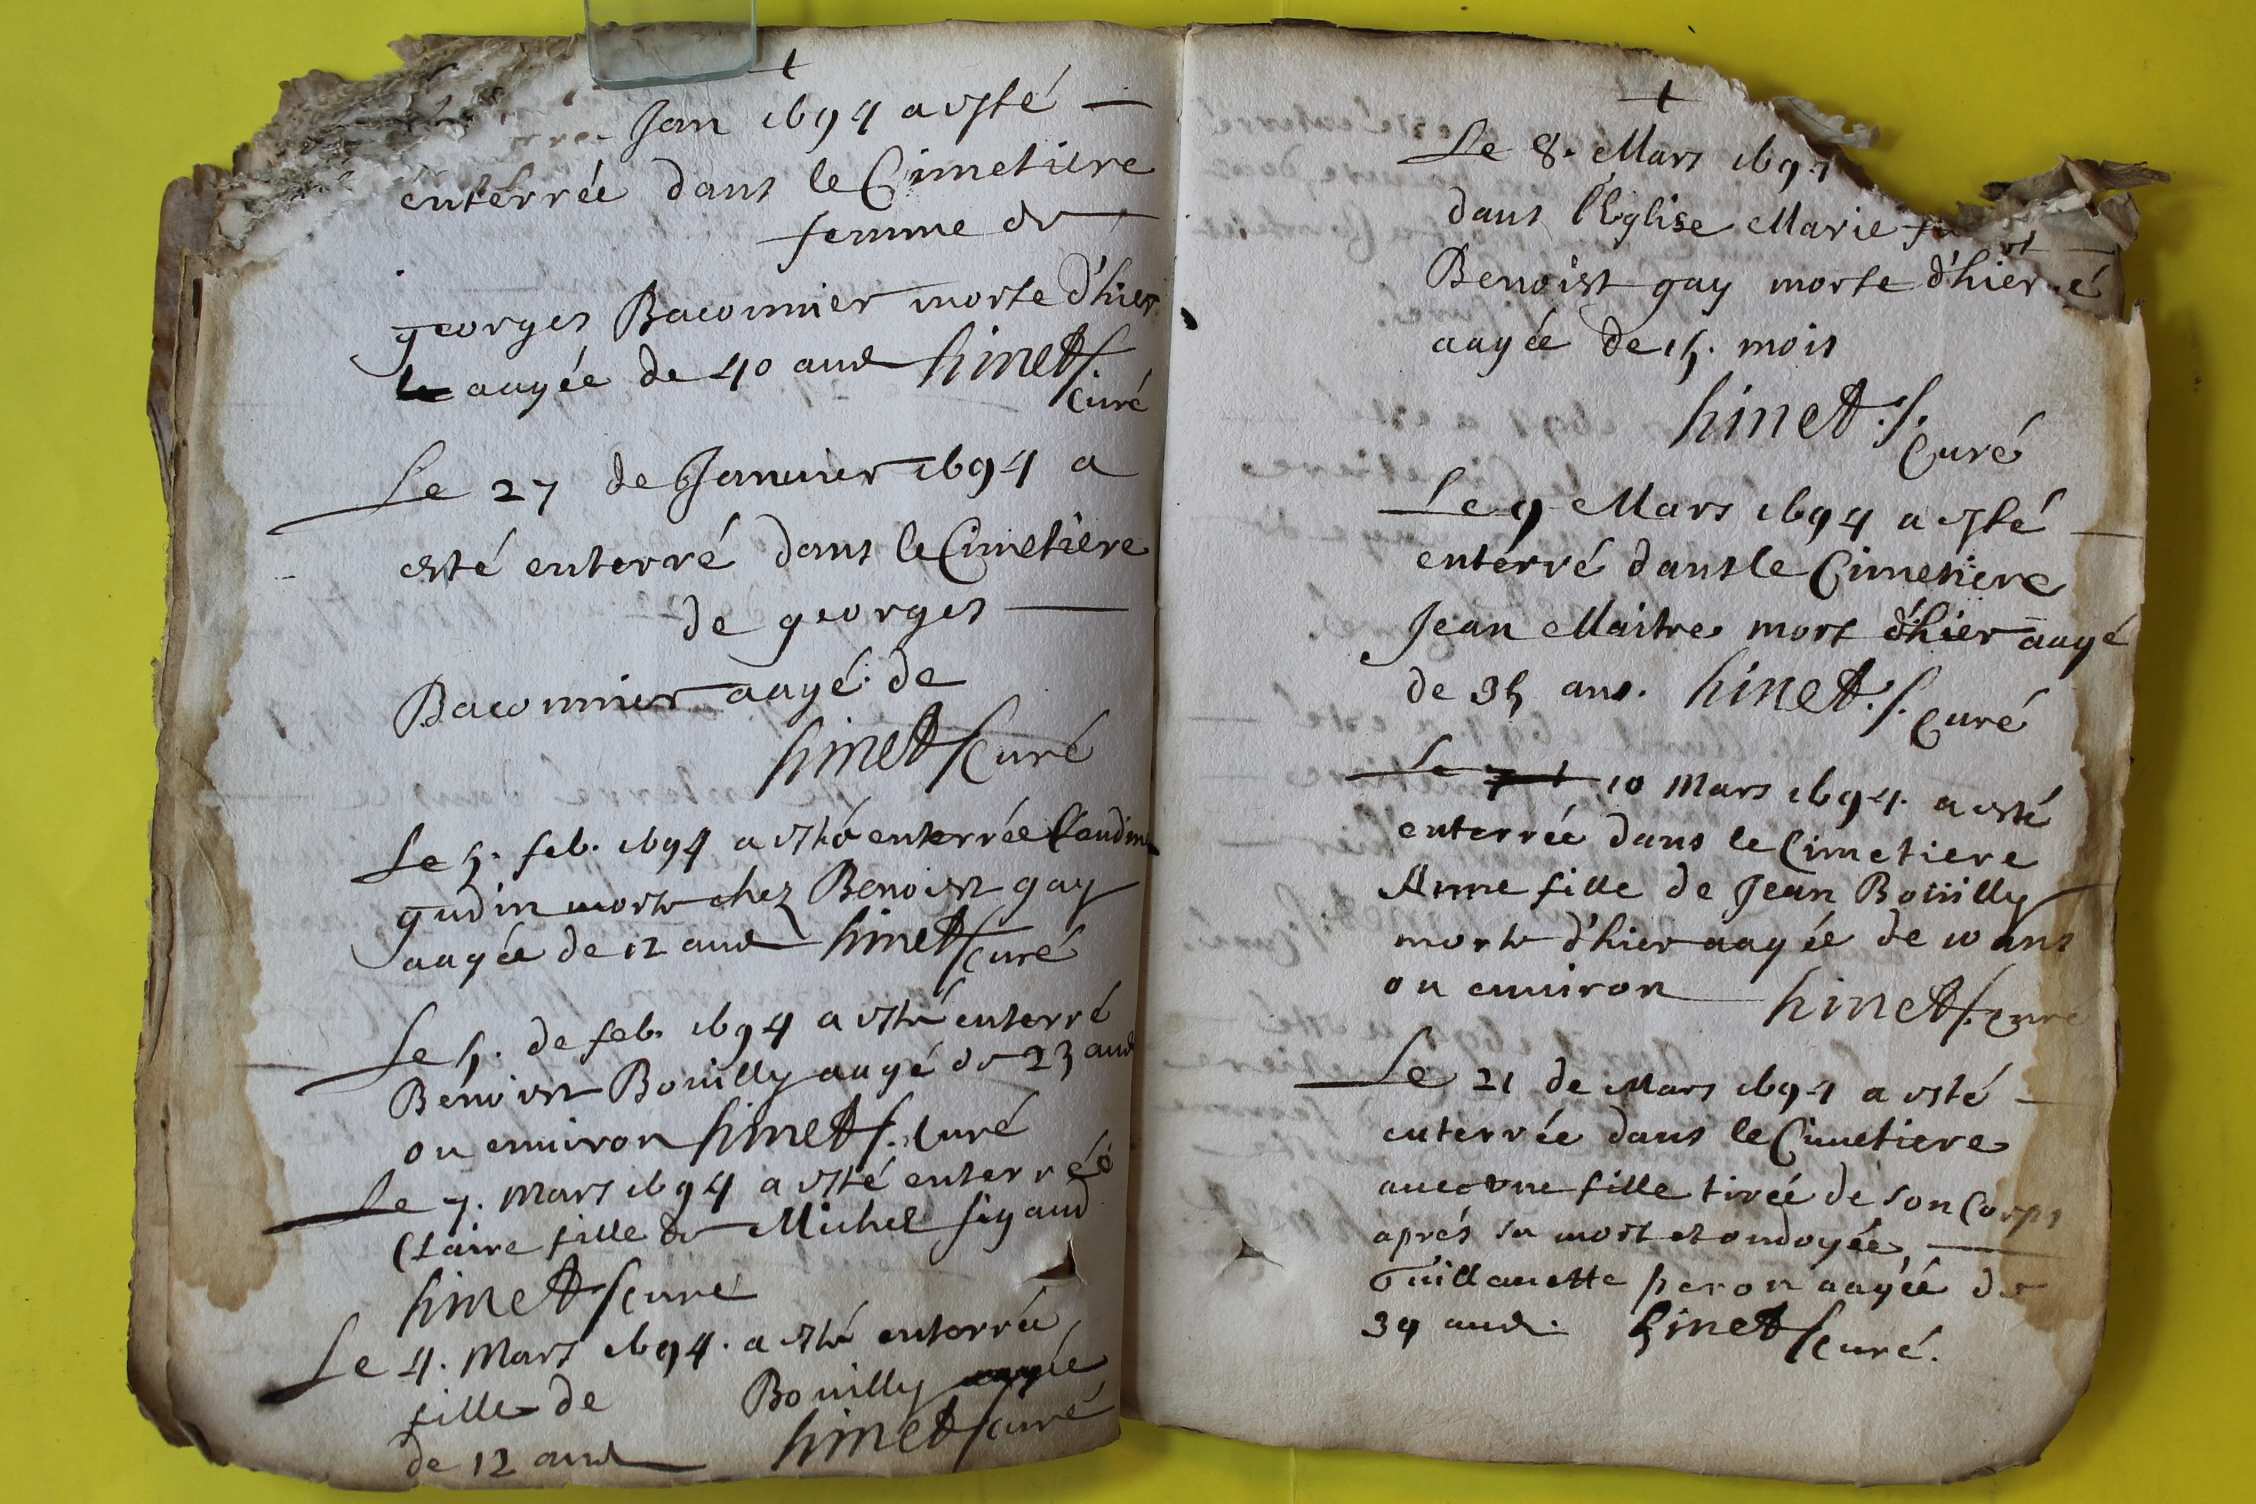 Jan 1694 a esté
enterrée dans le Cimetiere
femme de
georges Baconnier morte d'hier
aagée de 40 ans hinet
Curé
Le 27 de Januier 1694 a
esté enterré dans le Cimetiere
de georges
Baconnier aagé de
hinet Curé
Le 5. feb. 1694 a esté enterrée Claudine
gudin morte chez Benoist gay
aagée de 12 ans hinet Curé
Le 5. de feb. 1694 a esté enterré
Benoist Bouilly aagé de 23 ans
ou enuiron hinet Curé
Le 7. Mars 1694 a esté enterrée
Claire fille de Michel sigaud
hinet Curé
Le 4. Mars 1694. a esté enterrée
fille de Bouilly aagée
de 12 ans hinet Curé
Le 8. Mars 1694
dans l'Eglise Marie
Benoist gay morte d'hier
aagée de 15. mois
hinet. Curé
Le 9 Mars 1694 a esté
enterré dans le Cimetiere
Jean Maitre mort d'hier aagé
de 35 ans. hinet. Curé
Le 10 Mars 1694. a esté
enterrée dans le Cimetiere
Anne fille de Jean Bouilly
morte d'hier aagée de 10 ans
ou enuiron hinet Curé
Le 21 de Mars 1694 a esté
enterrée dans le Cimetiere
auec une fille tirée de son Corps
aprés sa mort et ondoyée
Guillauette peron aagée de
39 ans. hinet Curé.